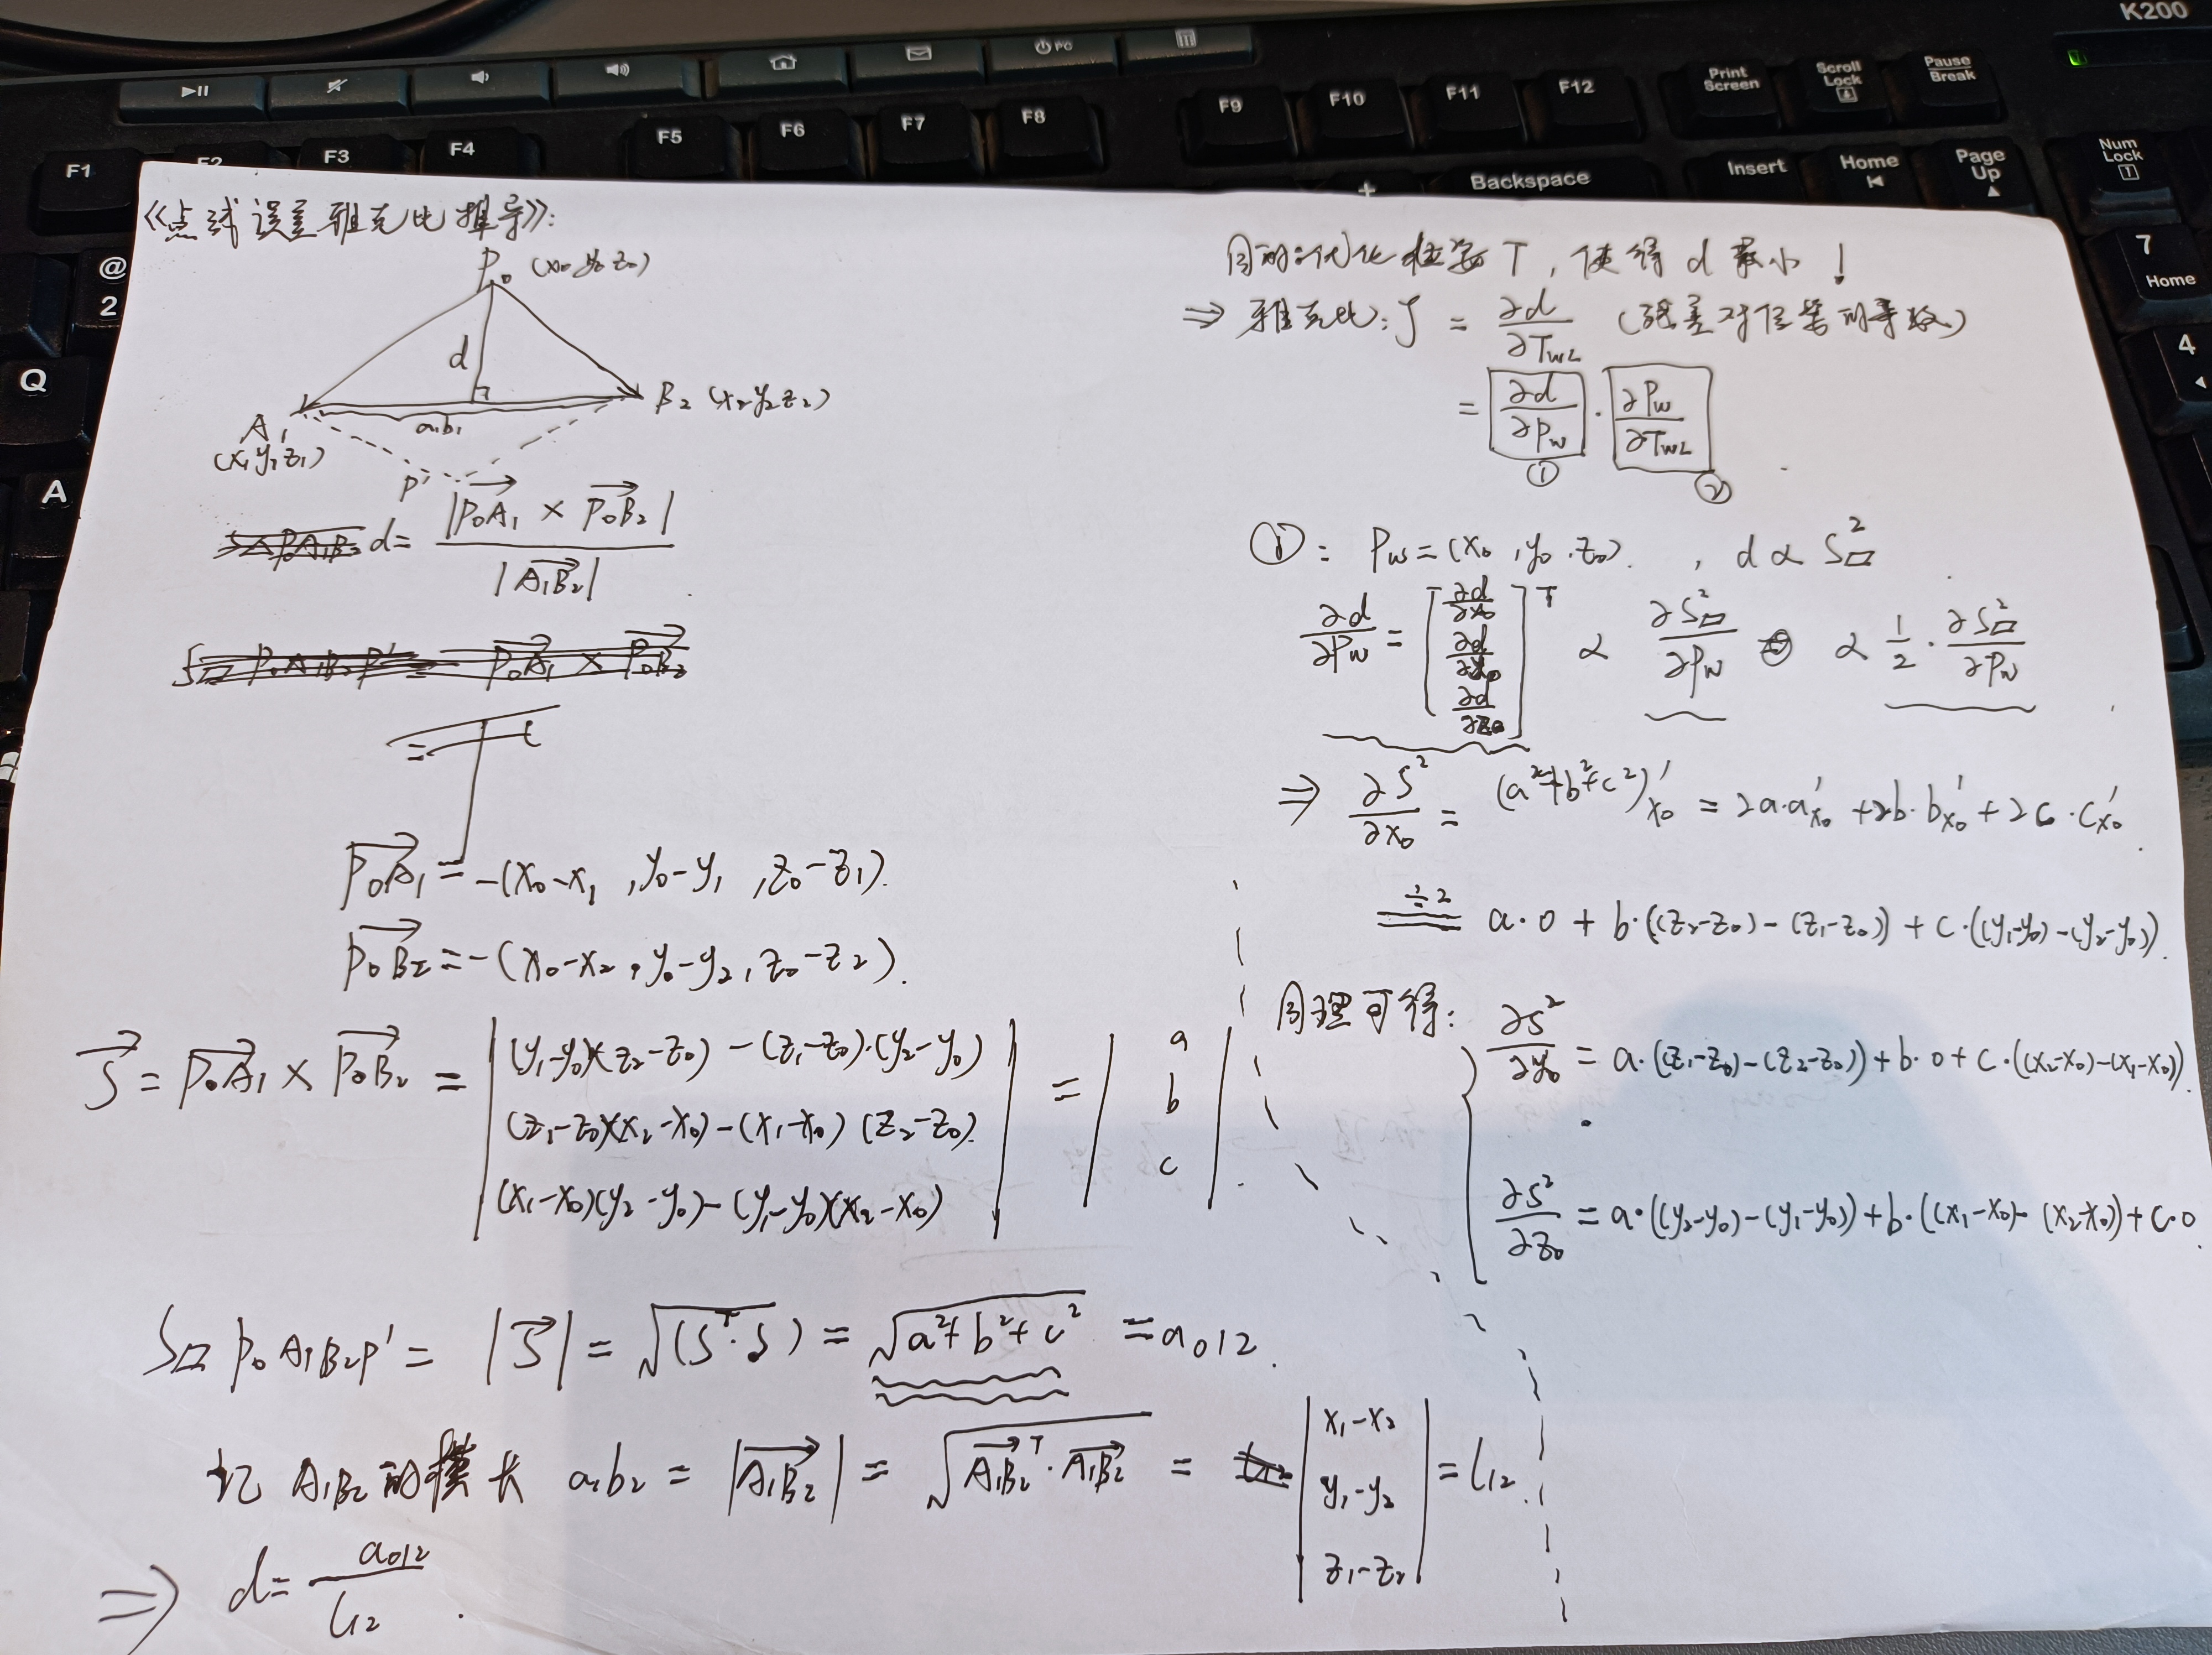 K200
PC
F1
F2
F3
F4
F5
F6
F7
F8
F9
F10
F11
F12
Print Screen
Scroll Lock
Pause Break
Insert
Home
Page Up
Num Lock
Backspace
7 Home
4
@ 2
Q
A
《点线误差雅克比推导》:
P₀ (x₀ y₀ z₀)
d
A₁ (x₁ y₁ z₁)
a₁b₁
B₂ (x₂ y₂ z₂)
P'
d = |P₀A₁ × P₀B₂| / |A₁B₂|
P₀A₁ = -(x₀-x₁, y₀-y₁, z₀-z₁).
P₀B₂ = -(x₀-x₂, y₀-y₂, z₀-z₂).
S = P₀A₁ × P₀B₂ = | (y₁-y₀)(z₂-z₀) - (z₁-z₀)·(y₂-y₀) | = | a |
(z₁-z₀)(x₂-x₀) - (x₁-x₀)(z₂-z₀) b
(x₁-x₀)(y₂-y₀) - (y₁-y₀)(x₂-x₀) c
S▱P₀A₁B₂P' = |S| = √(Sᵀ·S) = √a²+b²+c² = a012.
记 A₁B₂的模长 a₁b₂ = |A₁B₂| = √A₁B₂ᵀ·A₁B₂ = | x₁-x₂ | = l₁₂.
y₁-y₂
z₁-z₂
⇒ d = a012 / l₁₂.
目的:优化位姿T,使得d最小!
⇒ 雅克比: J = ∂d/∂T_WL (残差对位姿的导数)
= ∂d/∂P_W · ∂P_W/∂T_WL
① ②
①: P_W = (x₀, y₀, z₀). , d ∝ S▱²
∂d/∂P_W = [∂d/∂x₀ ∂d/∂y₀ ∂d/∂z₀]ᵀ ∝ ∂S▱²/∂P_W ∝ 1/2 · ∂S▱²/∂P_W
⇒ ∂S²/∂x₀ = (a²+b²+c²)'x₀ = 2a·a'x₀ + 2b·b'x₀ + 2c·c'x₀.
÷2 = a·0 + b·((z₂-z₀)-(z₁-z₀)) + c·((y₁-y₀)-(y₂-y₀)).
同理可得: ∂S²/∂y₀ = a·((z₁-z₀)-(z₂-z₀)) + b·0 + c·((x₂-x₀)-(x₁-x₀)).
∂S²/∂z₀ = a·((y₂-y₀)-(y₁-y₀)) + b·((x₁-x₀)-(x₂-x₀)) + c·0.